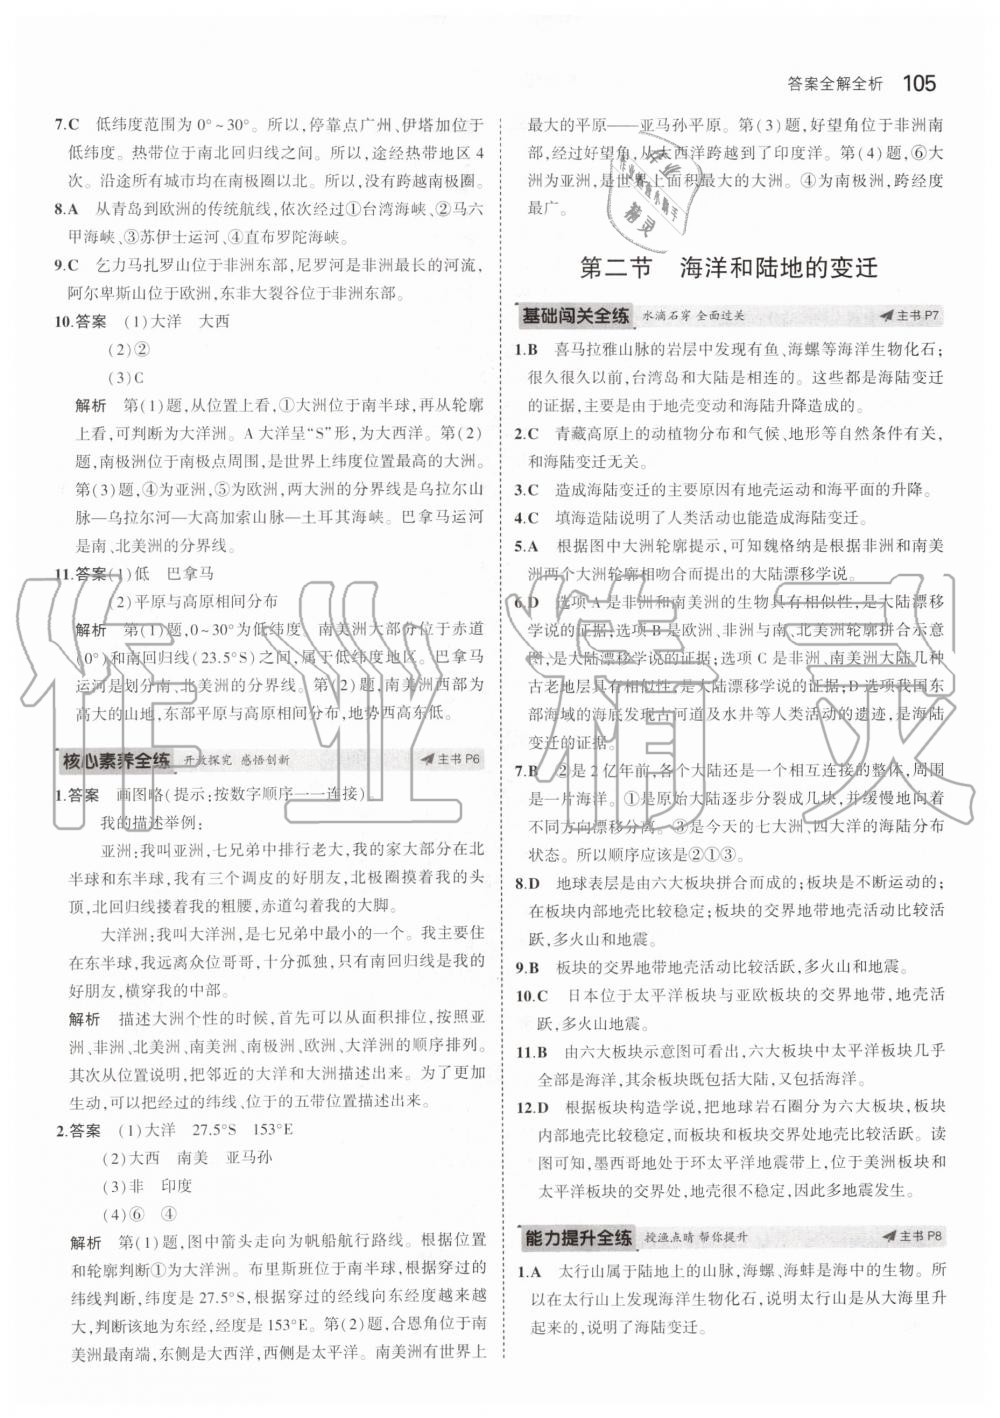 答案全解全析 105
7.C 低纬度范围为0°~30°。所以,停靠点广州、伊塔加位于
低纬度。热带位于南北回归线之间。所以,途经热带地区4
次。沿途所有城市均在南极圈以北。所以,没有跨越南极圈。
8.A 从青岛到欧洲的传统航线,依次经过①台湾海峡、②马六
甲海峡、③苏伊士运河、④直布罗陀海峡。
9.C 乞力马扎罗山位于非洲东部,尼罗河是非洲最长的河流,
阿尔卑斯山位于欧洲,东非大裂谷位于非洲东部。
10.答案 (1)大洋 大西
(2)②
(3)C
解析 第(1)题,从位置上看,①大洲位于南半球,再从轮廓
上看,可判断为大洋洲。A大洋呈“S”形,为大西洋。第(2)
题,南极洲位于南极点周围,是世界上纬度位置最高的大洲。
第(3)题,④为亚洲,⑤为欧洲,两大洲的分界线是乌拉尔山
脉—乌拉尔河—大高加索山脉—土耳其海峡。巴拿马运河
是南、北美洲的分界线。
11.答案(1)低 巴拿马
(2)平原与高原相间分布
解析 第(1)题,0~30°为低纬度,南美洲大部分位于赤道
(0°)和南回归线(23.5°S)之间,属于低纬度地区。巴拿马
运河是划分南、北美洲的分界线。第(2)题,南美洲西部为
高大的山地,东部平原与高原相间分布,地势西高东低。
核心素养全练 开放探究 感悟创新 主书P6
1.答案 画图略(提示:按数字顺序一一连接)
我的描述举例:
亚洲:我叫亚洲,七兄弟中排行老大,我的家大部分在北
半球和东半球,我有三个调皮的好朋友,北极圈摸着我的头
顶,北回归线搂着我的粗腰,赤道勾着我的大脚。
大洋洲:我叫大洋洲,是七兄弟中最小的一个。我主要住
在东半球,远远离众位哥哥,十分孤独,只有南回归线是我的
好朋友,横穿我的中部。
解析 描述大洲个性的时候,首先可以从面积排位,按照亚
洲、非洲、北美洲、南美洲、南极洲、欧洲、大洋洲的顺序排列。
其次从位置说明,把邻近的大洋和大洲描述出来。为了更加
生动,可以把经过的纬线、位于的五带位置描述出来。
2.答案 (1)大洋 27.5°S 153°E
(2)大西 南美 亚马孙
(3)非 印度
(4)⑥ ④
解析 第(1)题,图中箭头走向为帆船航行路线。根据位置
和轮廓判断①为大洋洲。布里斯班位于南半球,根据穿过的
纬线判断,纬度是27.5°S,根据穿过的经线向东经度越来越
大,判断该地为东经,经度是153°E。第(2)题,合恩角位于南
美洲最南端,东侧是大西洋,西侧是太平洋。南美洲有世界上
最大的平原——亚马孙平原。第(3)题,好望角位于非洲南
部,经过好望角,从大西洋跨越到了印度洋。第(4)题,⑥大
洲为亚洲,是世界上面积最大的大洲。④为南极洲,跨经度
最广。
第二节 海洋和陆地的变迁
基础闯关全练 水滴石穿 全面过关 主书P7
1.B 喜马拉雅山脉的岩层中发现有鱼、海螺等海洋生物化石;
很久很久以前,台湾岛和大陆是相连的。这些都是海陆变迁
的证据,主要是由于地壳变动和海陆升降造成的。
2.C 青藏高原上的动植物分布和气候、地形等自然条件有关,
和海陆变迁无关。
3.C 造成海陆变迁的主要原因有地壳运动和海平面的升降。
4.C 填海造陆说明了人类活动也能造成海陆变迁。
5.A 根据图中大洲轮廓提示,可知魏格纳是根据非洲和南美
洲两个大洲轮廓相吻合而提出的大陆漂移学说。
6.D 选项A是非洲和南美洲的生物具有相似性,是大陆漂移
学说的证据;选项B是欧洲、非洲与南、北美洲轮廓拼合示意
图,是大陆漂移学说的证据;选项C是非洲、南美洲大陆几种
古老地层具有相似性,是大陆漂移学说的证据;D选项我国东
部海域的海底发现古河道及水井等人类活动的遗迹,是海陆
变迁的证据。
7.B ②是2亿年前,各个大陆还是一个相互连接的整体,周围
是一片海洋。①是原始大陆逐步分裂成几块,并缓慢地向着
不同方向漂移分离。③是今天的七大洲、四大洋的海陆分布
状态。所以顺序应该是②①③。
8.D 地球表层是由六大板块拼合而成的;板块是不断运动的;
在板块内部地壳比较稳定;板块的交界地带地壳活动比较活
跃,多火山和地震。
9.B 板块的交界地带地壳活动比较活跃,多火山和地震。
10.C 日本位于太平洋板块与亚欧板块的交界地带,地壳活
跃,多火山地震。
11.B 由六大板块示意图可看出,六大板块中太平洋板块几乎
全部是海洋,其余板块既包括大陆,又包括海洋。
12.D 根据板块构造学说,把地球岩石圈分为六大板块,板块
内部地壳比较稳定,而板块和板块交界处地壳比较活跃。读
图可知,墨西哥地处于环太平洋地震带上,位于美洲板块和
太平洋板块的交界处,地壳很不稳定,因此多地震发生。
能力提升全练 授渔点睛 帮你提升 主书P8
1.A 太行山属于陆地上的山脉,海螺、海蚌是海中的生物。所
以在太行山上发现海洋生物化石,说明太行山是从大海里升
起来的,说明了海陆变迁。